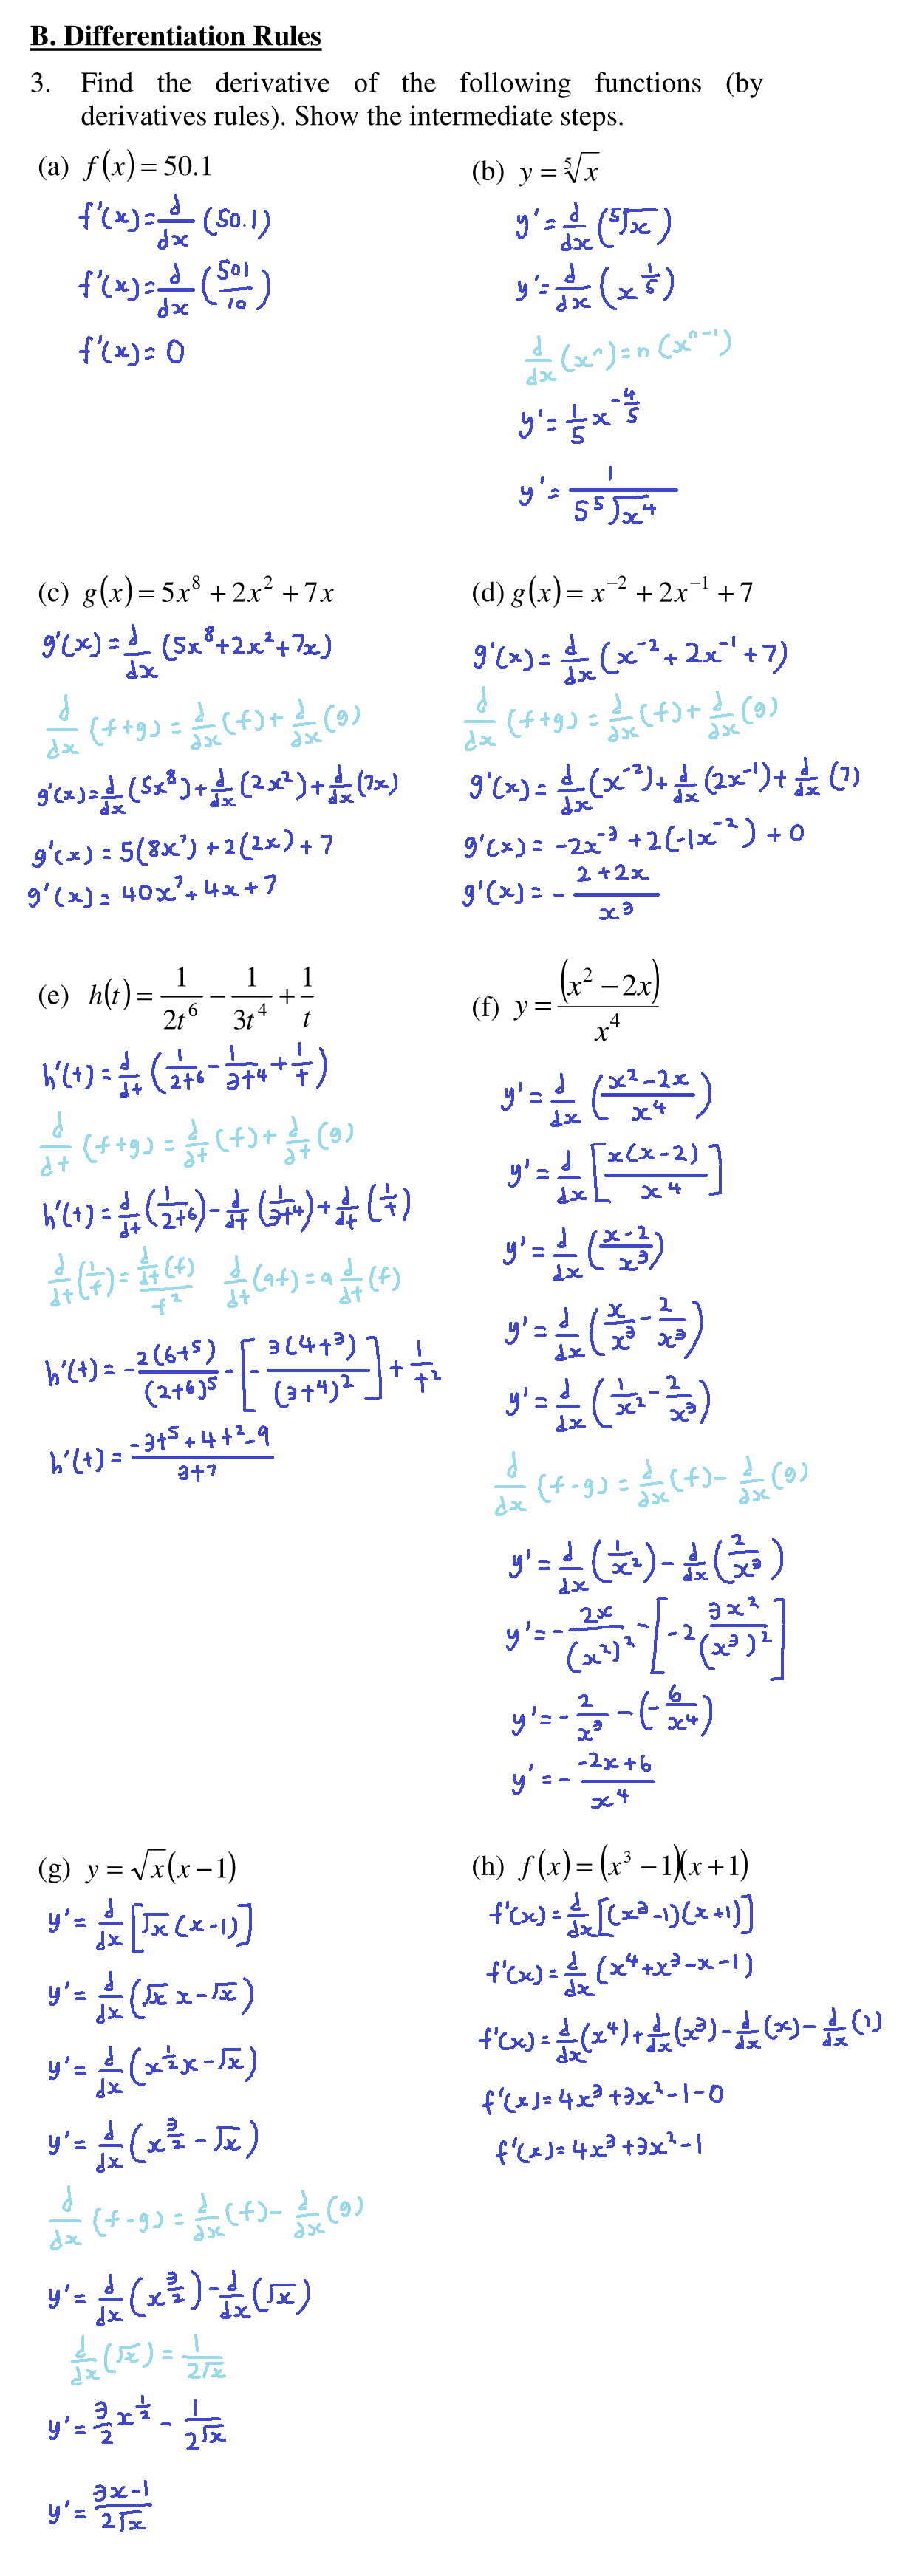 B. Differentiation Rules
3. Find the derivative of the following functions (by
derivatives rules). Show the intermediate steps.
(a) f(x) = 50.1
f'(x) = d/dx (50.1)
f'(x) = d/dx (501/10)
f'(x) = 0
(b) y = ⁵√x
y' = d/dx (⁵√x)
y' = d/dx (x^(1/5))
d/dx (xⁿ) = n (xⁿ⁻¹)
y' = 1/5 x^(-4/5)
y' = 1/(5 ⁵√x⁴)
(c) g(x) = 5x⁸ + 2x² + 7x
g'(x) = d/dx (5x⁸ + 2x² + 7x)
d/dx (f+g) = d/dx (f) + d/dx (g)
g'(x) = d/dx (5x⁸) + d/dx (2x²) + d/dx (7x)
g'(x) = 5(8x⁷) + 2(2x) + 7
g'(x) = 40x⁷ + 4x + 7
(d) g(x) = x⁻² + 2x⁻¹ + 7
g'(x) = d/dx (x⁻² + 2x⁻¹ + 7)
d/dx (f+g) = d/dx (f) + d/dx (g)
g'(x) = d/dx (x⁻²) + d/dx (2x⁻¹) + d/dx (7)
g'(x) = -2x⁻³ + 2(-1x⁻²) + 0
g'(x) = - (2+2x)/x³
(e) h(t) = 1/(2t⁶) − 1/(3t⁴) + 1/t
h'(t) = d/dt (1/(2t⁶) - 1/(3t⁴) + 1/t)
d/dt (f+g) = d/dt (f) + d/dt (g)
h'(t) = d/dt (1/(2t⁶)) - d/dt (1/(3t⁴)) + d/dt (1/t)
d/dt (1/f) = (d/dt (f))/f² d/dt (af) = a d/dt (f)
h'(t) = - 2(6t⁵)/(2t⁶)⁵ - [- 3(4t³)/(3t⁴)²] + 1/t²
h'(t) = (-3t⁵ + 4t² - 9)/(3t7)
(f) y = (x² − 2x)/x⁴
y' = d/dx ((x² - 2x)/x⁴)
y' = d/dx [x(x-2)/x⁴]
y' = d/dx ((x-2)/x³)
y' = d/dx (x/x³ - 2/x³)
y' = d/dx (1/x² - 2/x³)
d/dx (f-g) = d/dx (f) - d/dx (g)
y' = d/dx (1/x²) - d/dx (2/x³)
y' = - 2x/(x²)² - [-2 3x²/(x³)²]
y' = - 2/x³ - (- 6/x⁴)
y' = - (-2x+6)/x⁴
(g) y = √x(x − 1)
y' = d/dx [√x (x-1)]
y' = d/dx (√x x - √x)
y' = d/dx (x^(1/2) x - √x)
y' = d/dx (x^(3/2) - √x)
d/dx (f-g) = d/dx (f) - d/dx (g)
y' = d/dx (x^(3/2)) - d/dx (√x)
d/dx (√x) = 1/(2√x)
y' = 3/2 x^(1/2) - 1/(2√x)
y' = (3x-1)/(2√x)
(h) f(x) = (x³ − 1)(x + 1)
f'(x) = d/dx [(x³-1)(x+1)]
f'(x) = d/dx (x⁴ + x³ - x - 1)
f'(x) = d/dx (x⁴) + d/dx (x³) - d/dx (x) - d/dx (1)
f'(x) = 4x³ + 3x² - 1 - 0
f'(x) = 4x³ + 3x² - 1